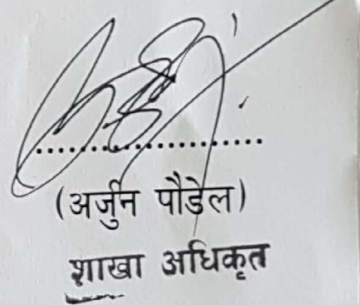 ....................
(अर्जुन पौडेल)
शाखा अधिकृत